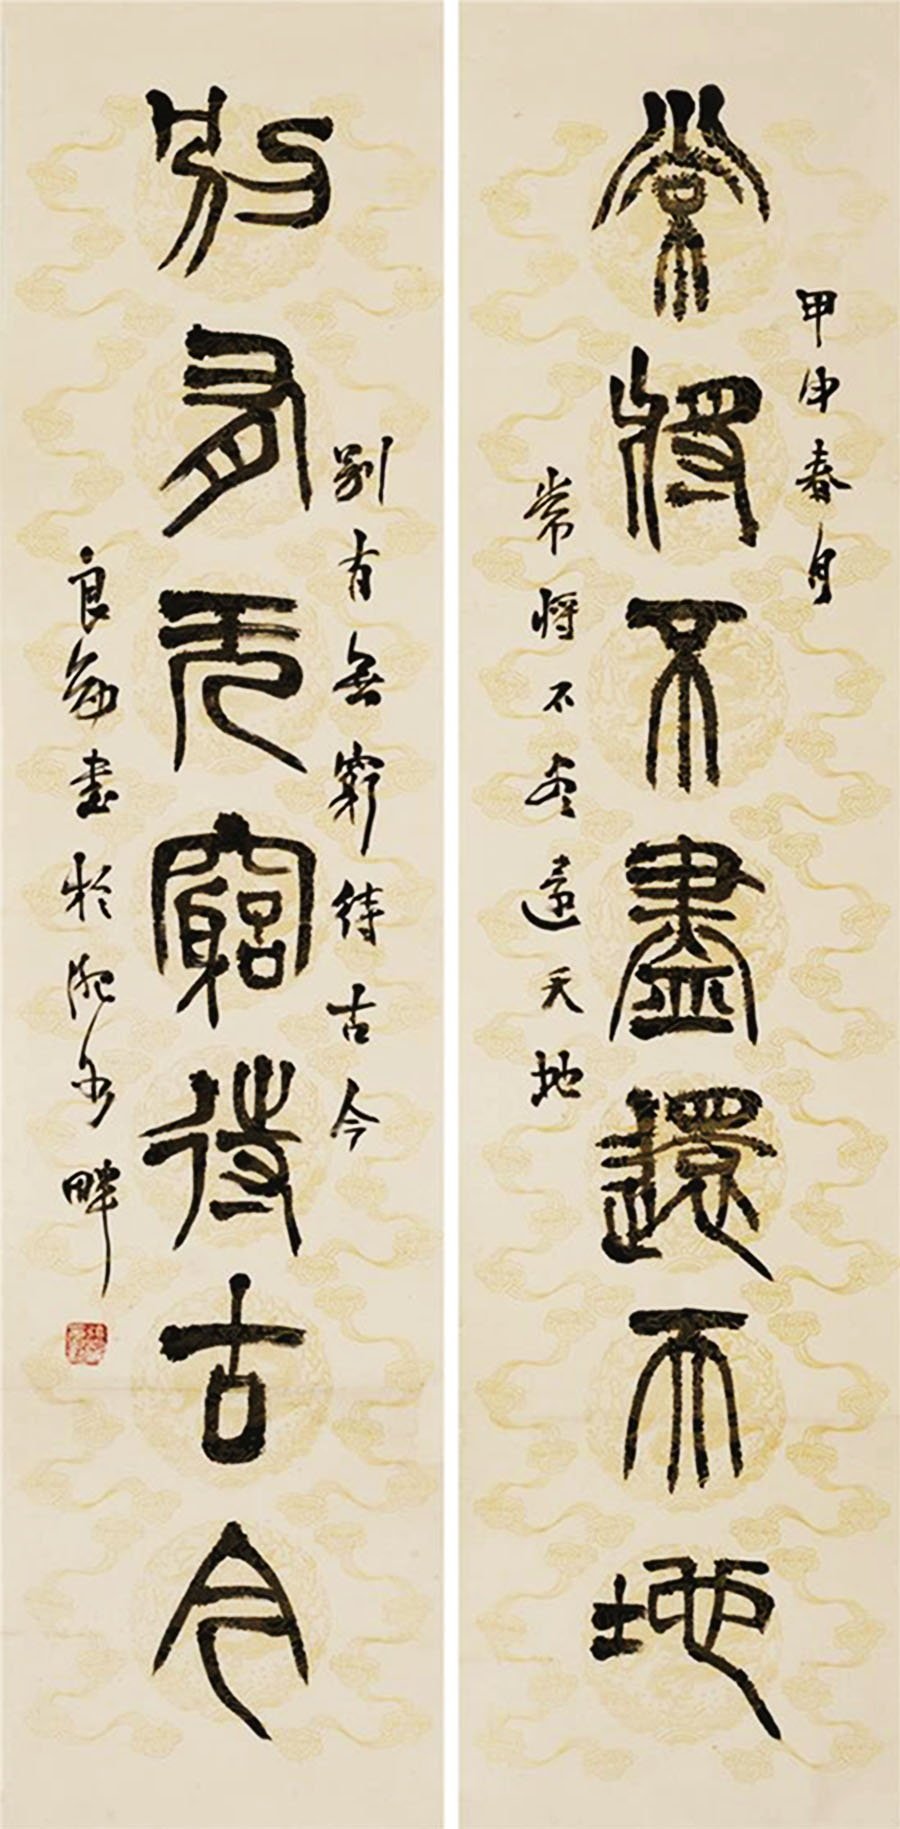 甲申春月
常將不盡還天地
常將不盡還天地
別有無窮待古今
別有无窮待古今
良書於湘水畔